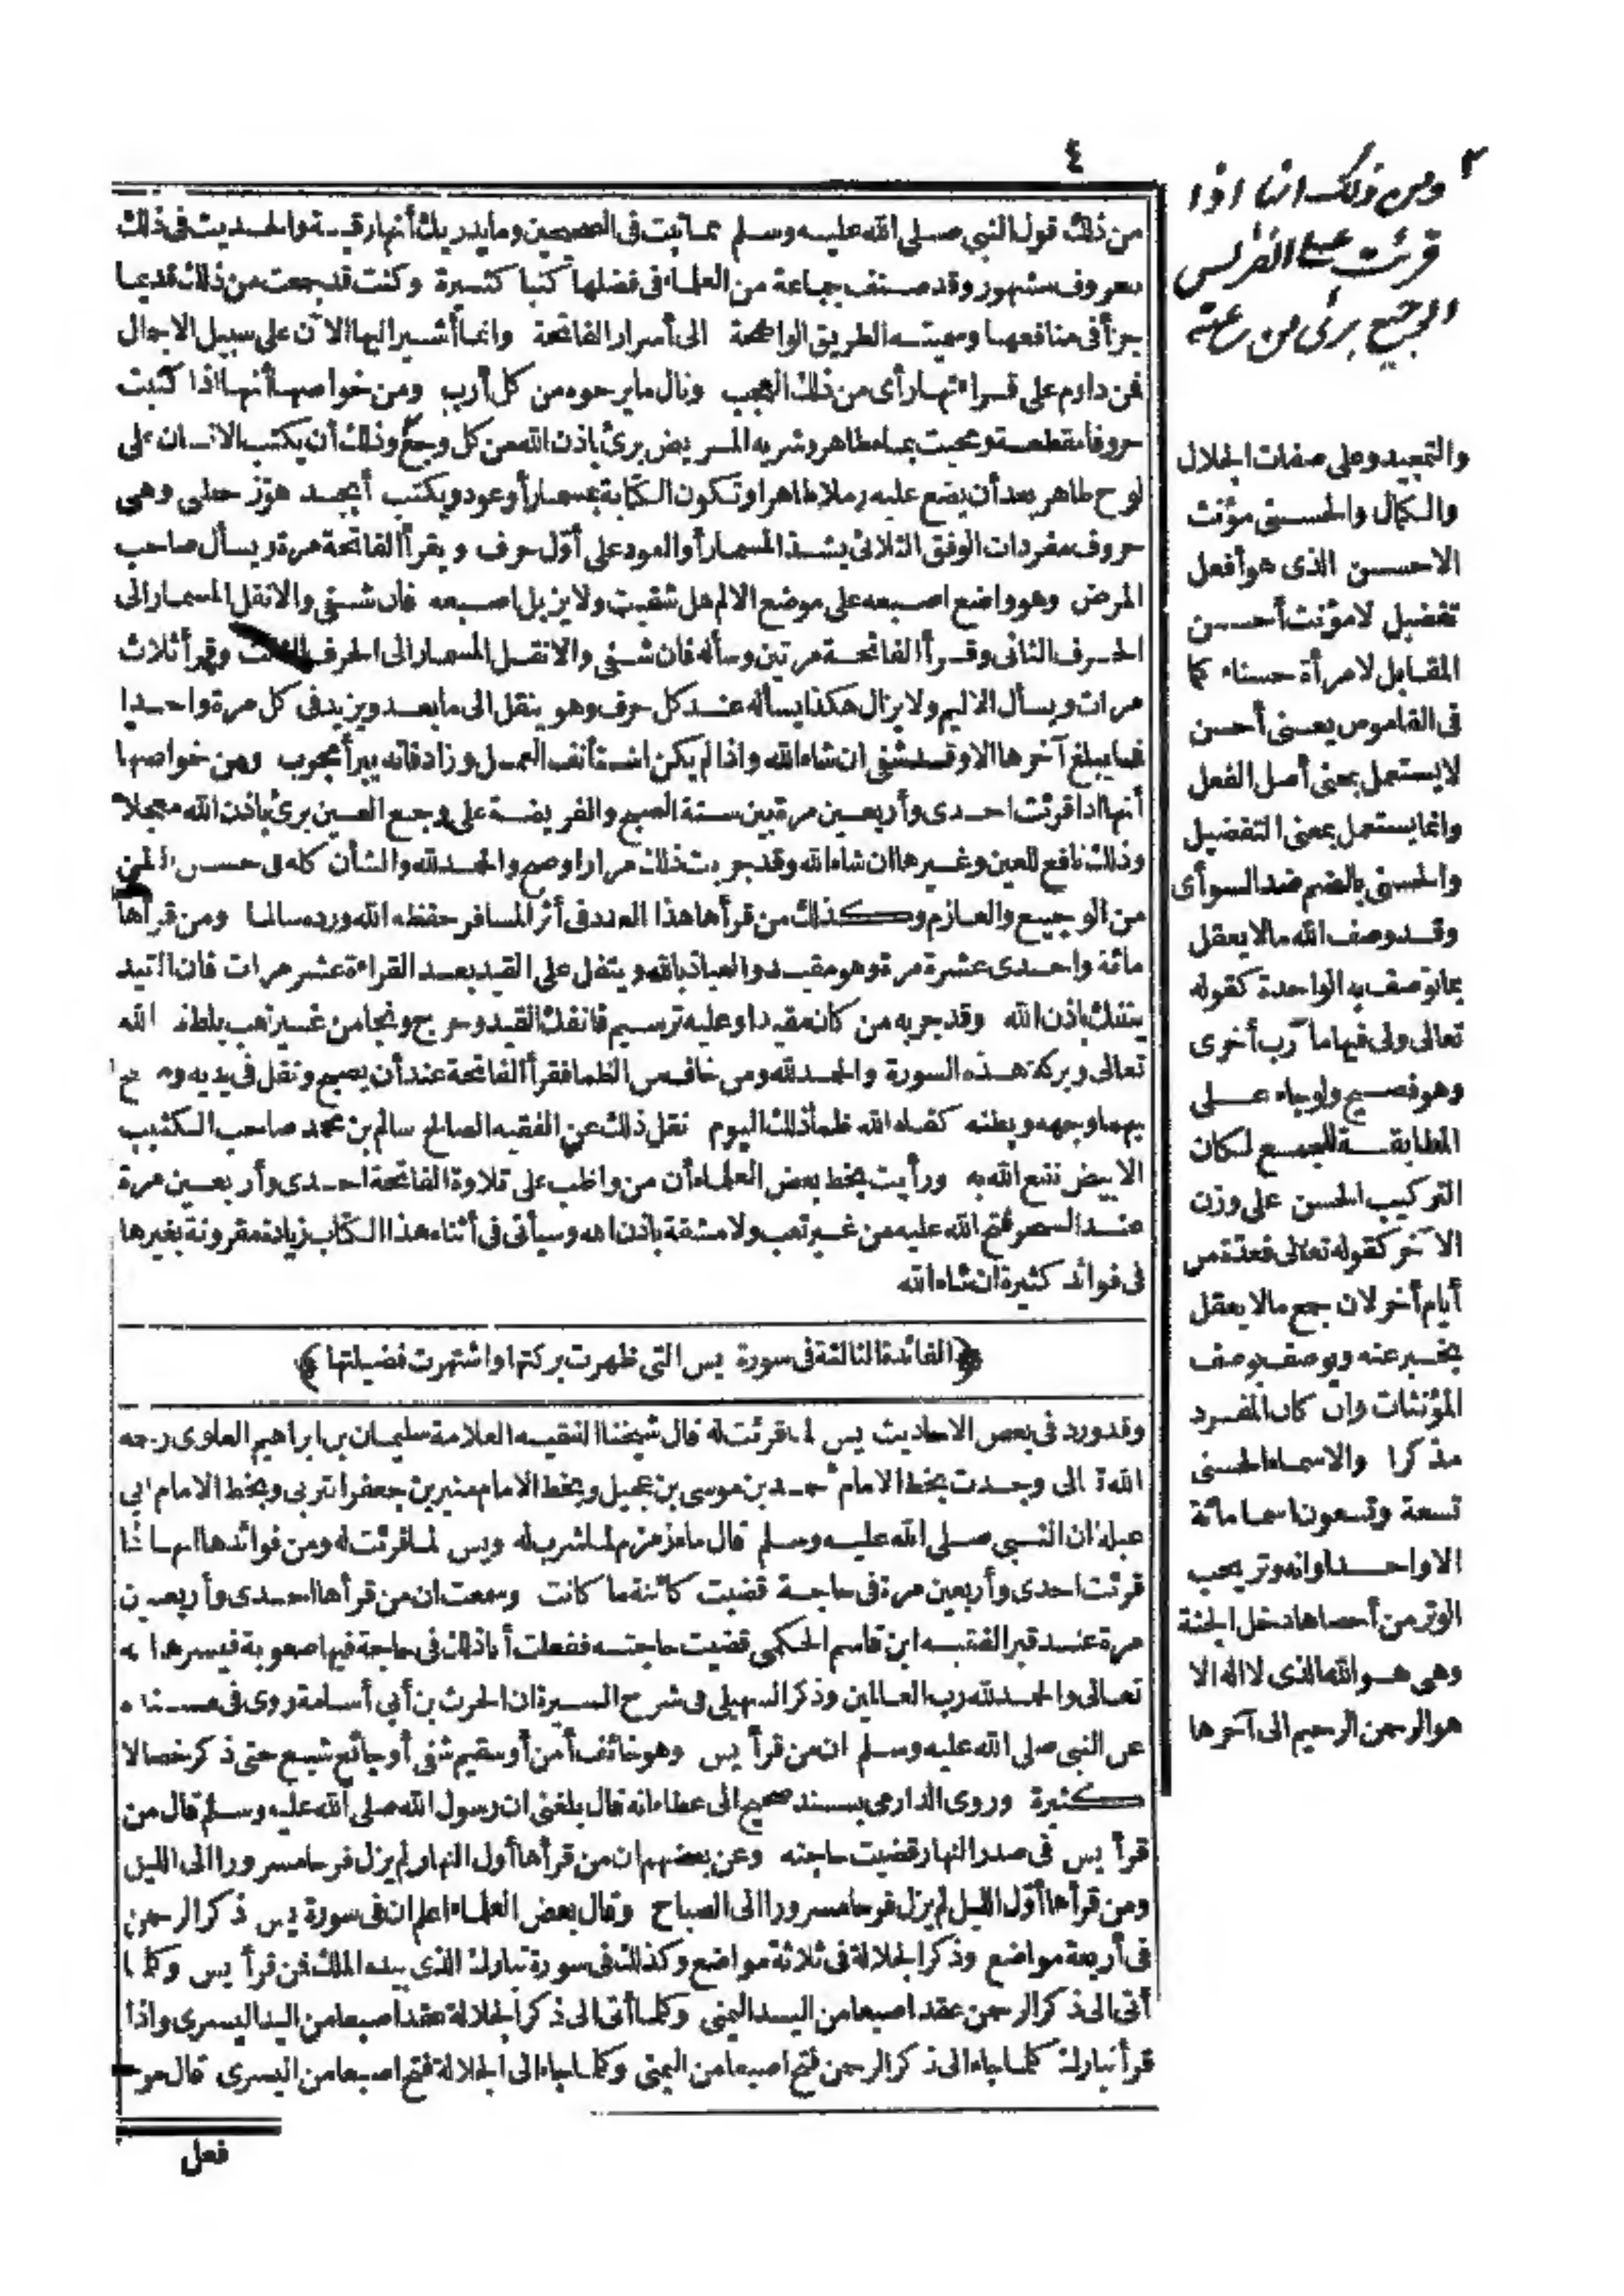 ٤
من ذلك قول النبي صلى الله عليه وسلم مما ثبت في الصحيحين وما يدريك أنها رقية والحديث في ذلك
معروف مشهور وقد صنف جماعة من العلماء في فضلها كتبا كثيرة وكنت قد جمعت من ذلك قديما
جزأ في منافعها وسميته الطريق الواضحة الى أسرار الفاتحة وانما أشير اليها الآن على سبيل الاجمال
فمن داوم على قراءتها رأى من ذلك العجب ونال ما يرجوه من كل أرب ومن خواصها أنها اذا كتبت
حروفا مقطعة ومحيت بماء طاهر وشربه المريض برئ باذن الله من كل وجع وذلك أن يكتب الانسان على
لوح طاهر بعد أن يضع عليه رملا طاهرا وتكون الكتابة بمسمار أو عود ويكتب أبجد هوّز حطى وهى
حروف مفردات الوفق الثلاثى يشد المسمار أو العود على أوّل حرف ويقرأ الفاتحة مرة ويسأل صاحب
المرض وهو واضع اصبعه على موضع الالم هل شفيت ولا يزيل اصبعه فان شفى والا نقل المسمار الى
الحرف الثانى وقرأ الفاتحة مرتين وسأله فان شفى والا نقل المسمار الى الحرف الثالث وقرأ ثلاث
مرات ويسأل الاليم ولا يزال هكذا يسأله عند كل حرف وهو ينقل الى ما بعد ويزيد فى كل مرة واحدا
فما يبلغ آخرها الا وقد شفى ان شاء الله واذا لم يكن استأنف العمل وزاد فانه يبرأ مجرب ومن خواصها
أنها اذا قرئت احدى وأربعين مرة بين سنة الصبح والفريضة على وجع العين برئ باذن الله معجلا
وذلك نافع للعين وغيرها ان شاء الله وقد جربت ذلك مرارا وصح والحمد لله والشأن كله فى حسن الظن
من الوجيع والعازم وكذلك من قرأها هذا العدد فى أثر المسافر حفظه الله ورده سالما ومن قرأها
مائة واحدى عشرة مرة وهو مقيد والعياذ بالله ويتفل على القيد بعد القراءة عشر مرات فان القيد
ينفك باذن الله وقد جربه من كان مقيدا وعليه ترسيم فانفك القيد وخرج ونجا من غير تعب بلطف الله
تعالى وبركة هذه السورة والحمد لله ومن خاف من الظما فقرأ الفاتحة عند أن يصبح وتفل فى يديه ومسح
بهما وجهه وبطنه كفاه الله ظمأ ذلك اليوم نقل ذلك عن الفقيه الصالح سالم بن محمد صاحب الكثيب
الابيض نفع الله به ورأيت بخط بعض العلماء أن من واظب على تلاوة الفاتحة احدى وأربعين مرة
عند السحر فتح الله عليه من غير تعب ولا مشقة باذن الله وسيأتى فى أثناء هذا الكتاب زيادة مقرونة بغيرها
فى فوائد كثيرة ان شاء الله
﴿الفائدة الثالثة فى سورة يس التى ظهرت بركتها واشتهرت فضيلتها﴾
وقد ورد فى بعض الاحاديث يس لما قرئت له قال شيخنا الفقيه العلامة سليمان بن ابراهيم العلوى رحمه
الله تعالى وجدت بخط الامام أحمد بن موسى بن عجيل وبخط الامام منير بن جعفر وبخط الامام أبى
ان النبى صلى الله عليه وسلم قال ماء زمزم لما شرب له ويس لما قرئت له ومن فوائدها انها اذا
قرئت احدى وأربعين مرة فى حاجة قضيت كائنة ما كانت وسمعت ان من قرأها احدى وأربعين
مرة عند قبر الفقيه ابن قاسم الحكمى قضيت حاجته ففعلت أنا ذلك فى حاجة فيها صعوبة فيسرها الله
تعالى والحمد لله رب العالمين وذكر السهيلى فى شرح السيرة ان الحرث بن أبى أسامة روى فى مسنده
عن النبى صلى الله عليه وسلم ان من قرأ يس وهو خائف أمن أو سقيم شفى أو جائع شبع حتى ذكر خصالا
كثيرة وروى الدارمى بسند صحيح الى عطاء انه قال بلغنى ان رسول الله صلى الله عليه وسلم قال من
قرأ يس فى صدر النهار قضيت حاجته وعن بعضهم ان من قرأها أول النهار لم يزل فرحا مسرورا الى الليل
ومن قرأها أوّل الليل لم يزل فرحا مسرورا الى الصباح وقال بعض العلماء اعلم ان فى سورة يس ذكر الرحمن
فى أربعة مواضع وذكر الجلالة فى ثلاثة مواضع وكذلك فى سورة تبارك الذى بيده الملك فمن قرأ يس وكلما
أتى الى ذكر الرحمن عقد اصبعا من اليد اليمنى وكلما أتى الى ذكر الجلالة عقد اصبعا من اليد اليسرى واذا
قرأ تبارك كلما جاء الى ذكر الرحمن فتح اصبعا من اليمنى وكلما جاء الى الجلالة فتح اصبعا من اليسرى قال
فعل
ومن ذلك انها اذا
قرئت على
الوجيع برئ من
والتمجيد وعلى صفات الجلال
والكمال والحسنى مؤنث
الاحسن الذى هو أفعل
تفضيل لا مؤنث أحسن
المقابل لامرأة حسناء كما
فى القاموس يعنى أحسن
لا يستعمل بمعنى أصل الفعل
وانما يستعمل بمعنى التفضيل
والحسنى بالضم ضد السوأى
وقد وصف الله ما لا يعقل
بما توصف به الواحدة كقوله
تعالى ولى فيها مآرب أخرى
وهو فصيح ولو جاء على
المطابقة للجمع لكان
التركيب الحسن على وزن
الآخر كقوله تعالى فعدة من
أيام أخر لان جمع ما لا يعقل
يخبر عنه ويوصف بوصف
المؤنثات وان كان المفرد
مذكرا والاسماء الحسنى
تسعة وتسعون اسما مائة
الا واحدا وانه وتر يحب
الوتر من أحصاها دخل الجنة
وهى هو الله الذى لا اله الا
هو الرحمن الرحيم الى آخرها